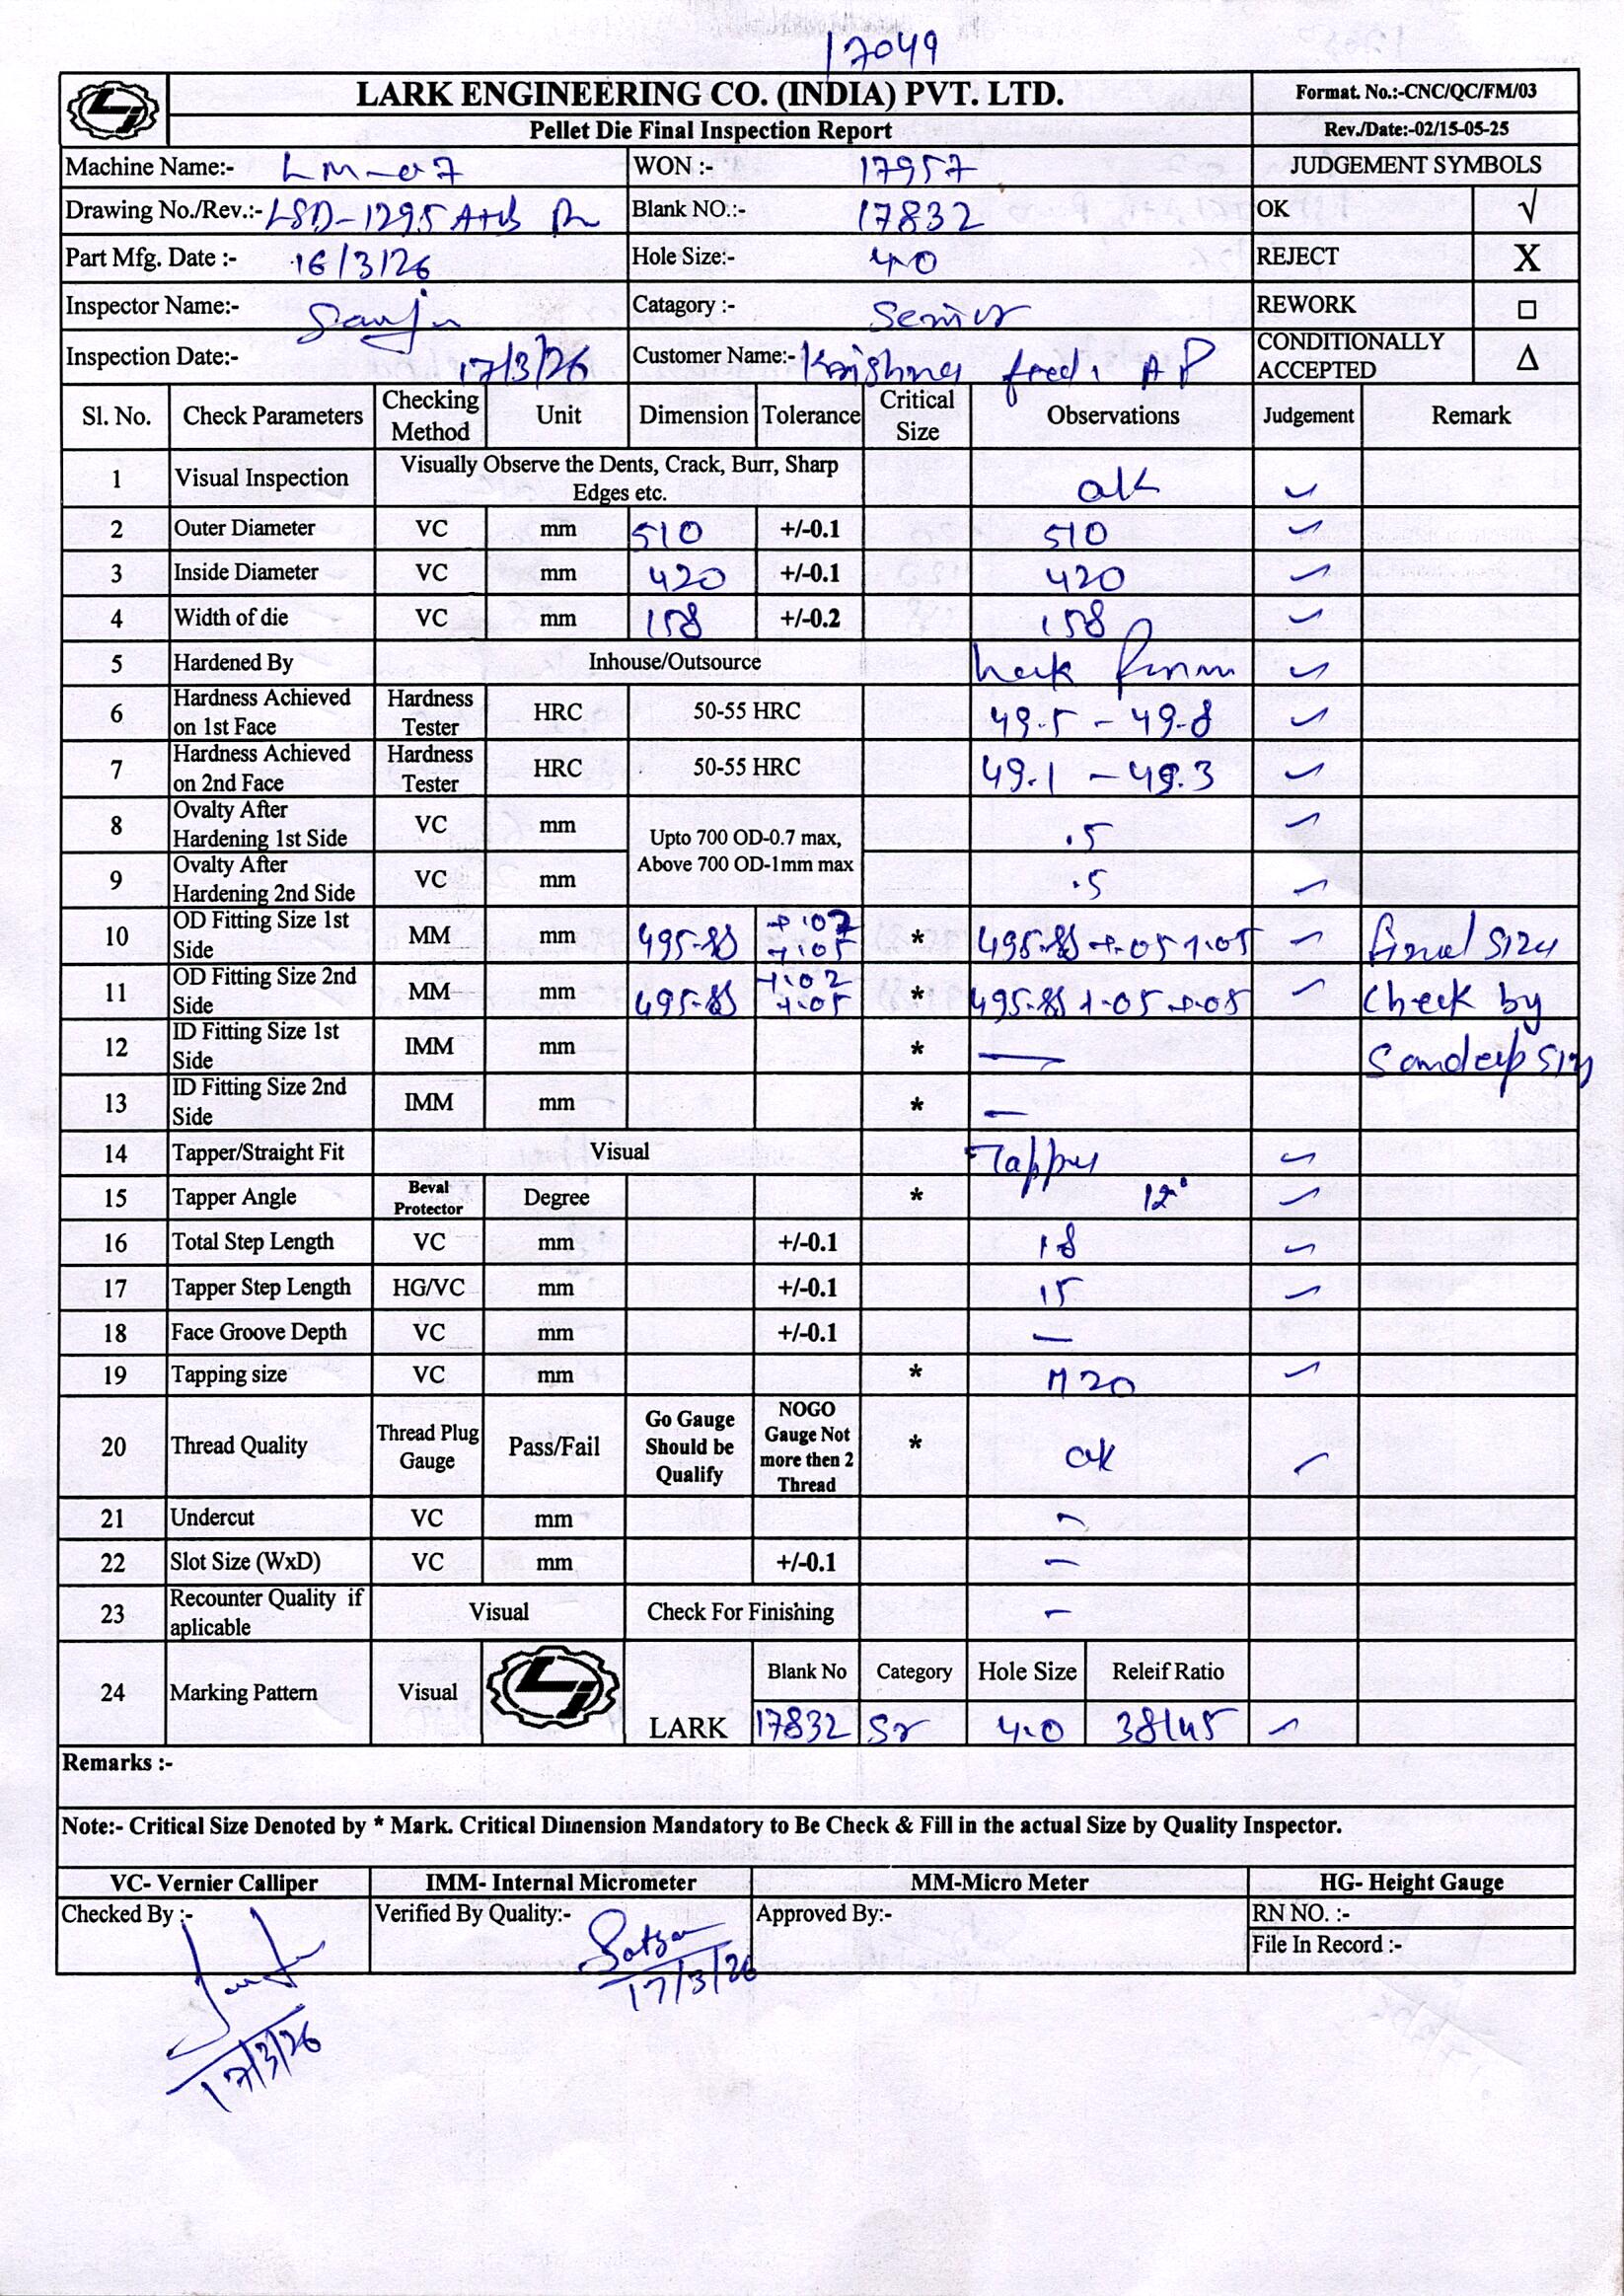 17049
LARK ENGINEERING CO. (INDIA) PVT. LTD. Format. No.:-CNC/QC/FM/03
Pellet Die Final Inspection Report Rev./Date:-02/15-05-25
Machine Name:- LM-07 WON :- 17957 JUDGEMENT SYMBOLS
Drawing No./Rev.:- LSD-1295 A+B Blank NO.:- 17832 OK √
Part Mfg. Date :- 16/3/26 Hole Size:- 4.0 REJECT X
Inspector Name:- Sanju Catagory :- Senior REWORK □
Inspection Date:- 17/3/26 Customer Name:- Krishna feeds AP CONDITIONALLY ACCEPTED Δ
Sl. No. Check Parameters Checking Method Unit Dimension Tolerance Critical Size Observations Judgement Remark
1 Visual Inspection Visually Observe the Dents, Crack, Burr, Sharp Edges etc. ok ✓
2 Outer Diameter VC mm 510 +/-0.1 510 ✓
3 Inside Diameter VC mm 420 +/-0.1 420 ✓
4 Width of die VC mm 158 +/-0.2 158 ✓
5 Hardened By Inhouse/Outsource ✓
6 Hardness Achieved on 1st Face Hardness Tester HRC 50-55 HRC 49.5 - 49.8 ✓
7 Hardness Achieved on 2nd Face Hardness Tester HRC 50-55 HRC 49.1 - 49.3 ✓
8 Ovalty After Hardening 1st Side VC mm Upto 700 OD-0.7 max, Above 700 OD-1mm max .5 ✓
9 Ovalty After Hardening 2nd Side VC mm .5 ✓
10 OD Fitting Size 1st Side MM mm 495.88 +.05 * 495.88 +.05 +.05 ✓ final size
11 OD Fitting Size 2nd Side MM mm 495.88 +.02 +.05 * 495.88 +.05 +.05 ✓ check by
12 ID Fitting Size 1st Side IMM mm * — Sandeep sir
13 ID Fitting Size 2nd Side IMM mm * —
14 Tapper/Straight Fit Visual Tapper ✓
15 Tapper Angle Beval Protector Degree * 12° ✓
16 Total Step Length VC mm +/-0.1 18 ✓
17 Tapper Step Length HG/VC mm +/-0.1 15 ✓
18 Face Groove Depth VC mm +/-0.1 —
19 Tapping size VC mm * M20 ✓
20 Thread Quality Thread Plug Gauge Pass/Fail Go Gauge Should be Qualify NOGO Gauge Not more then 2 Thread * ok ✓
21 Undercut VC mm -
22 Slot Size (WxD) VC mm +/-0.1 -
23 Recounter Quality if aplicable Visual Check For Finishing -
24 Marking Pattern Visual LARK Blank No Category Hole Size Releif Ratio
17832 Sr 4.0 38/45 ✓
Remarks :-
Note:- Critical Size Denoted by * Mark. Critical Dimension Mandatory to Be Check & Fill in the actual Size by Quality Inspector.
VC- Vernier Calliper IMM- Internal Micrometer MM-Micro Meter HG- Height Gauge
Checked By :- Verified By Quality:- Approved By:- RN NO. :-
File In Record :-
17/3/26
17/3/26